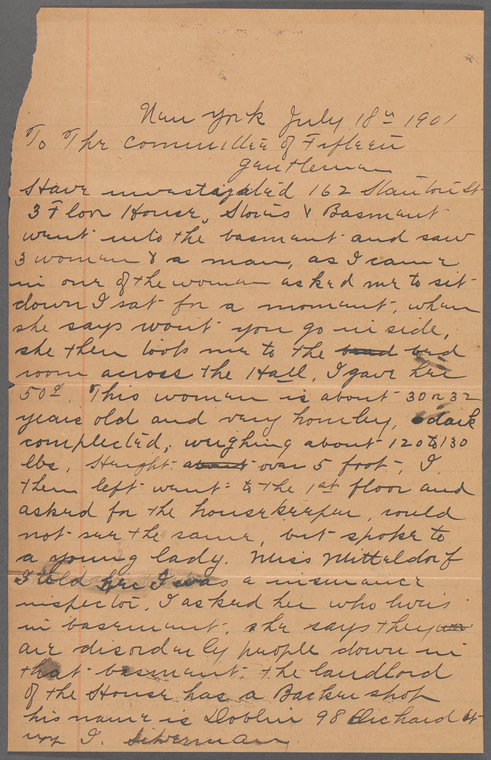 New York July 18th 1901
To The Committee of Fifteen
Gentleman
Have investagated 162 Stanton St
3 Floor House, Stores & Basment
went into the basment and saw
3 woman & a man, as I came
in one of the woman asked me to sit
down I sat for a moment, when
she says wont you go in side,
she then took me to the bead bed
room across the Hall, I gave her
50¢. This woman is about 30 or 32
years old and very homley, dark
complected; weighing about 120 to 130
lbs, Height about over 5 foot, I
then left went to the 1st floor and
asked for the housekeeper, could
not see the same, but spoke to
a young lady. Miss Mitteldorf
I told her I was a insurance
inspector, I asked her who lives
in basement, she says they
are disorderly people down in
that basment, the landlord
of the House has a Backer shop
his name is Doblin 98 Orchard St
I. Silverman